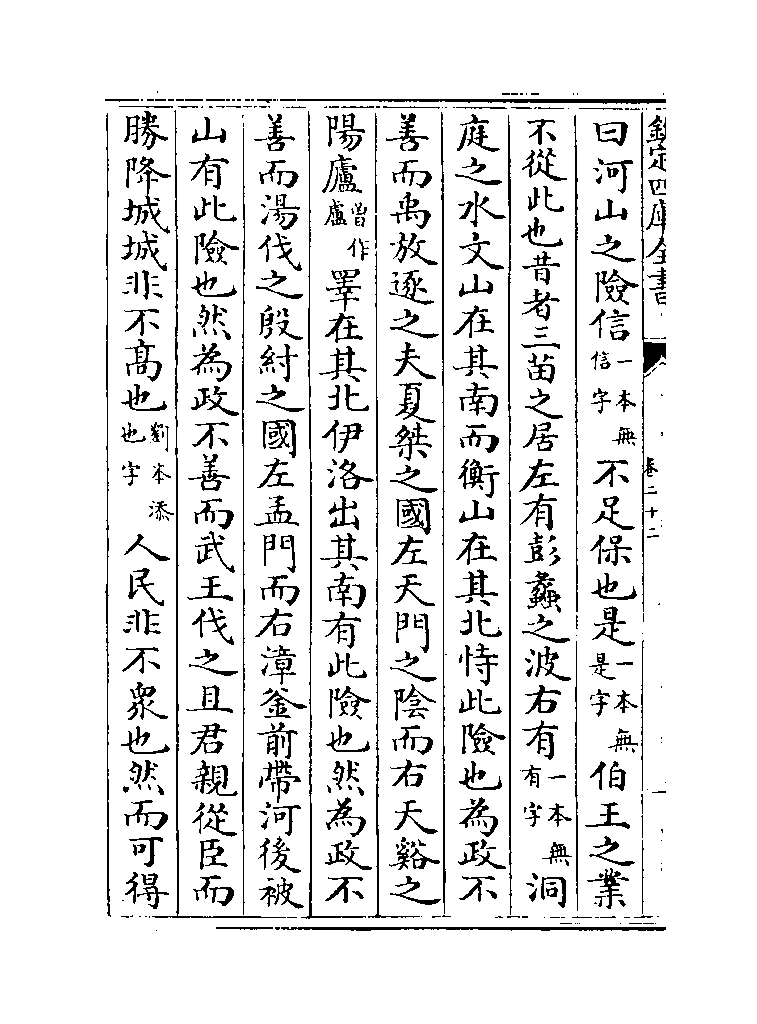 欽定四庫全書
卷二十二
曰河山之險信一本無信字不足保也是一本無是字伯王之業
不從此也昔者三苗之居左有彭蠡之波右有一本無有字洞
庭之水文山在其南而衡山在其北恃此險也為政不
善而禹放逐之夫夏桀之國左天門之陰而右天谿之
陽廬曾作廬睪在其北伊洛出其南有此險也然為政不
善而湯伐之殷紂之國左孟門而右漳釜前帶河後被
山有此險也然為政不善而武王伐之且君親從臣而
勝降城城非不髙也劉本添也字人民非不衆也然而可得